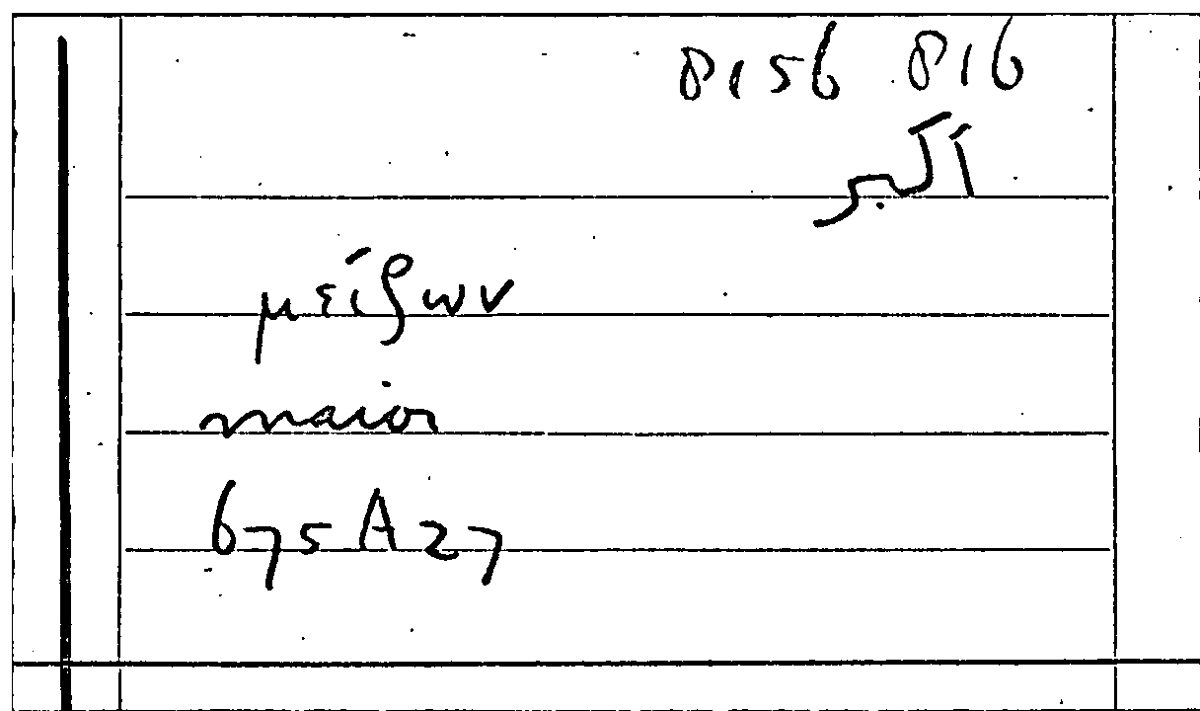 8156 816
أكبر
μείζων
maior
675A27